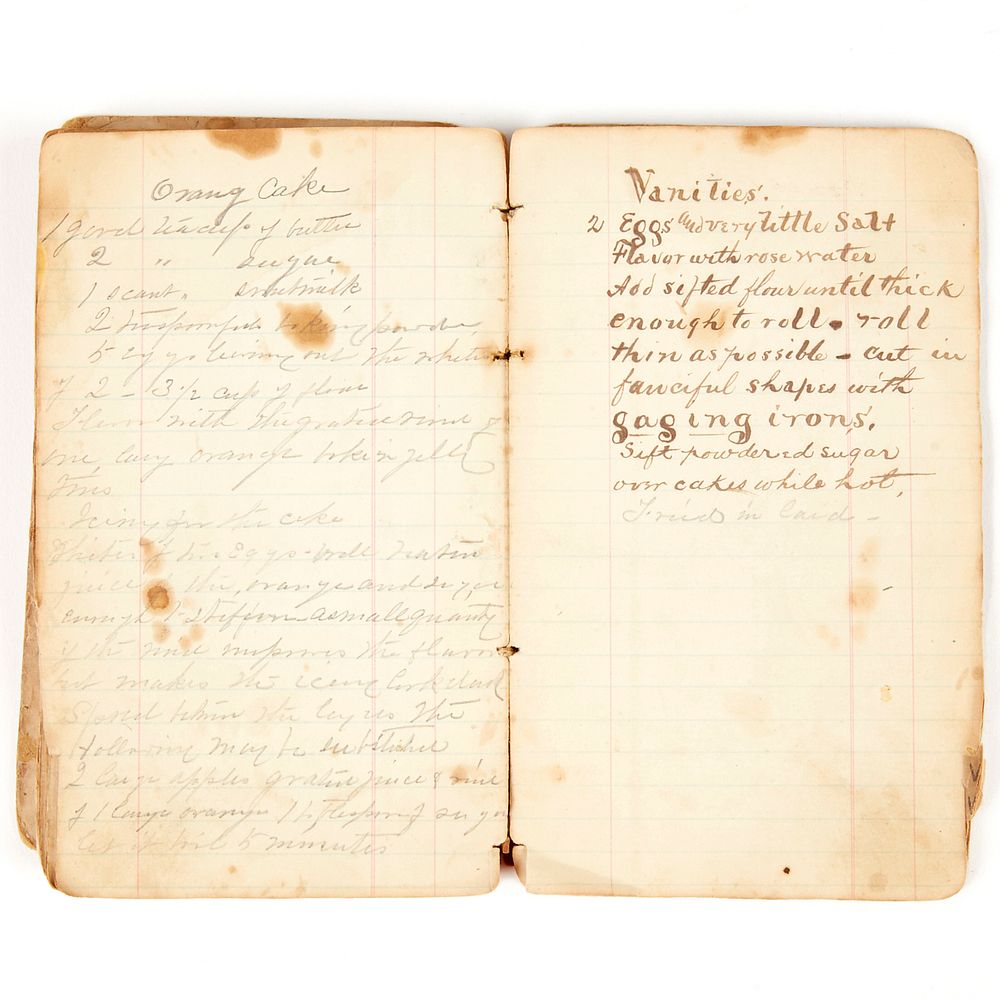 Orang Cake
1 good tea cup of butter
2 " sugar
1 scant " sweetmilk
2 teaspoonfuls baking powder
5 eggs leaving out the whites
of 2 - 3 1/2 cups of flour
Flavor with the grated rind of
one large orange bake in jelly
tins
Icing for the cake
Whites of two Eggs well beaten
juice of the orange and sugar
enough to stiffen a small quantity
of the rind improves the flavor
but makes the icing look dark
Spread between the layers The
following may be substituted
2 large apples grated juice & rind
of 1 large orange 1 sugar
let it boil 5 minutes
Vanities.
2 Eggs and very little Salt
Flavor with rose water
Add sifted flour until thick
enough to roll. roll
thin as possible - cut in
fanciful shapes with
gaging irons.
Sift powdered sugar
over cakes while hot,
Fried in lard -